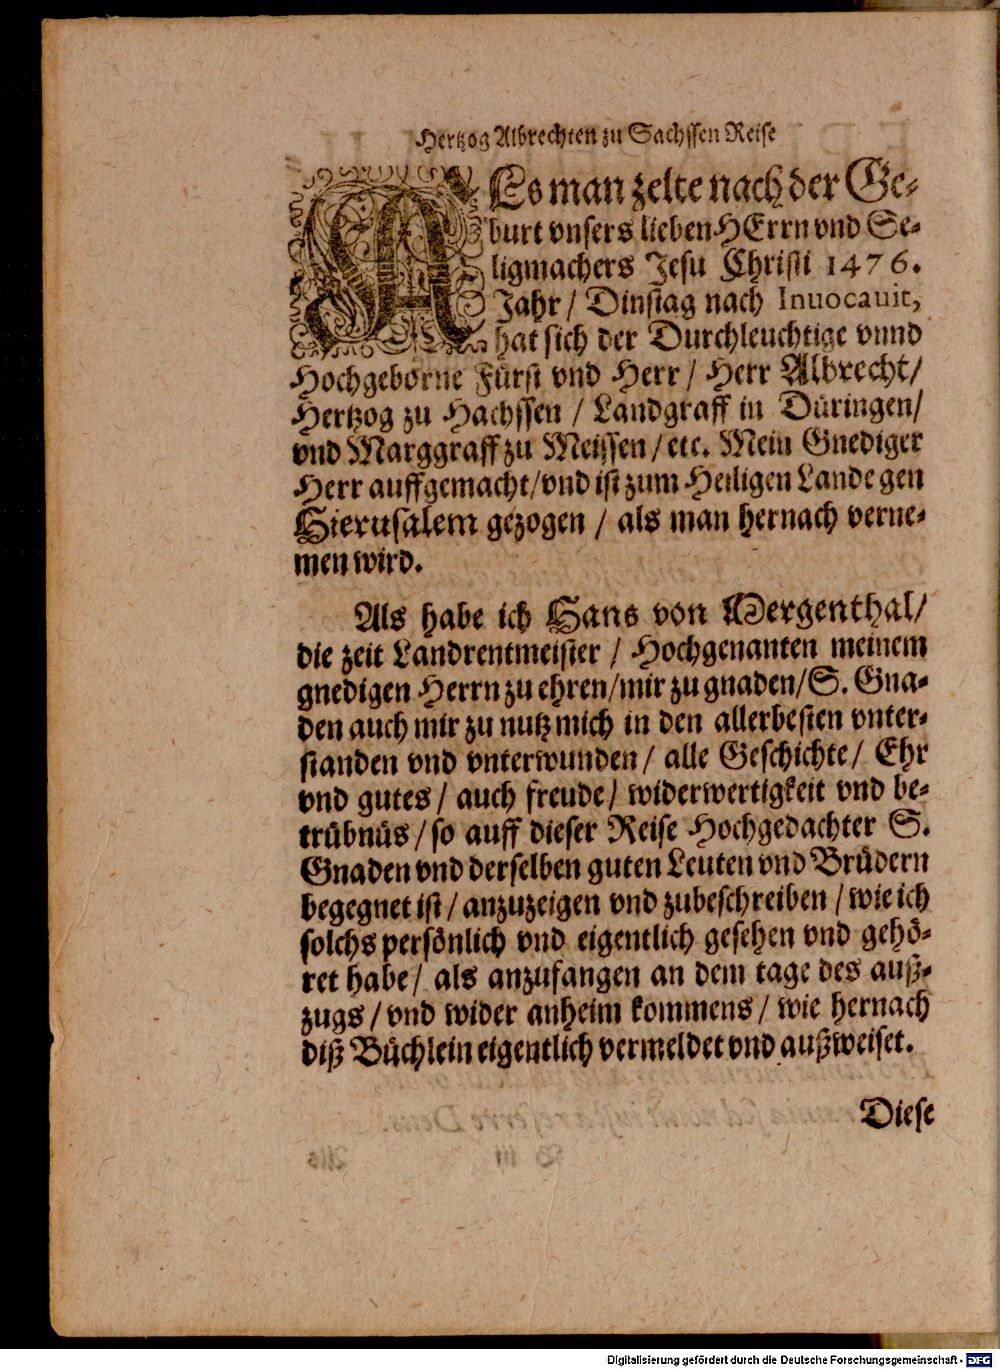 Hertzog Albrechten zu Sachssen Reise
ALs man zelte nach der Ge-
burt vnsers lieben HErrn vnd Se-
ligmachers Jesu Christi 1476.
Jahr / Dinstag nach Inuocauit,
hat sich der Durchleuchtige vnnd
Hochgeborne Fürst vnd Herr / Herr Albrecht /
Hertzog zu Hachssen / Landgraff in Düringen /
vnd Marggraff zu Meissen / etc. Mein Gnediger
Herr auffgemacht / vnd ist zum Heiligen Lande gen
Hierusalem gezogen / als man hernach verne-
men wird.
Als habe ich Hans von Mergenthal /
die zeit Landrentmeister / Hochgenanten meinem
gnedigen Herrn zu ehren / mir zu gnaden / S. Gna-
den auch mir zu nutz mich in den allerbesten vnter-
standen vnd vnterwunden / alle Geschichte / Ehr
vnd gutes / auch freude / widerwertigkeit vnd be-
trübnüs / so auff dieser Reise Hochgedachter S.
Gnaden vnd derselben guten Leuten vnd Brüdern
begegnet ist / anzuzeigen vnd zubeschreiben / wie ich
solchs persönlich vnd eigentlich gesehen vnd gehö-
ret habe / als anzufangen an dem tage des auß-
zugs / vnd wider anheim kommens / wie hernach
diß Büchlein eigentlich vermeldet vnd außweiset.
Diese
Digitalisierung gefördert durch die Deutsche Forschungsgemeinschaft - DFG